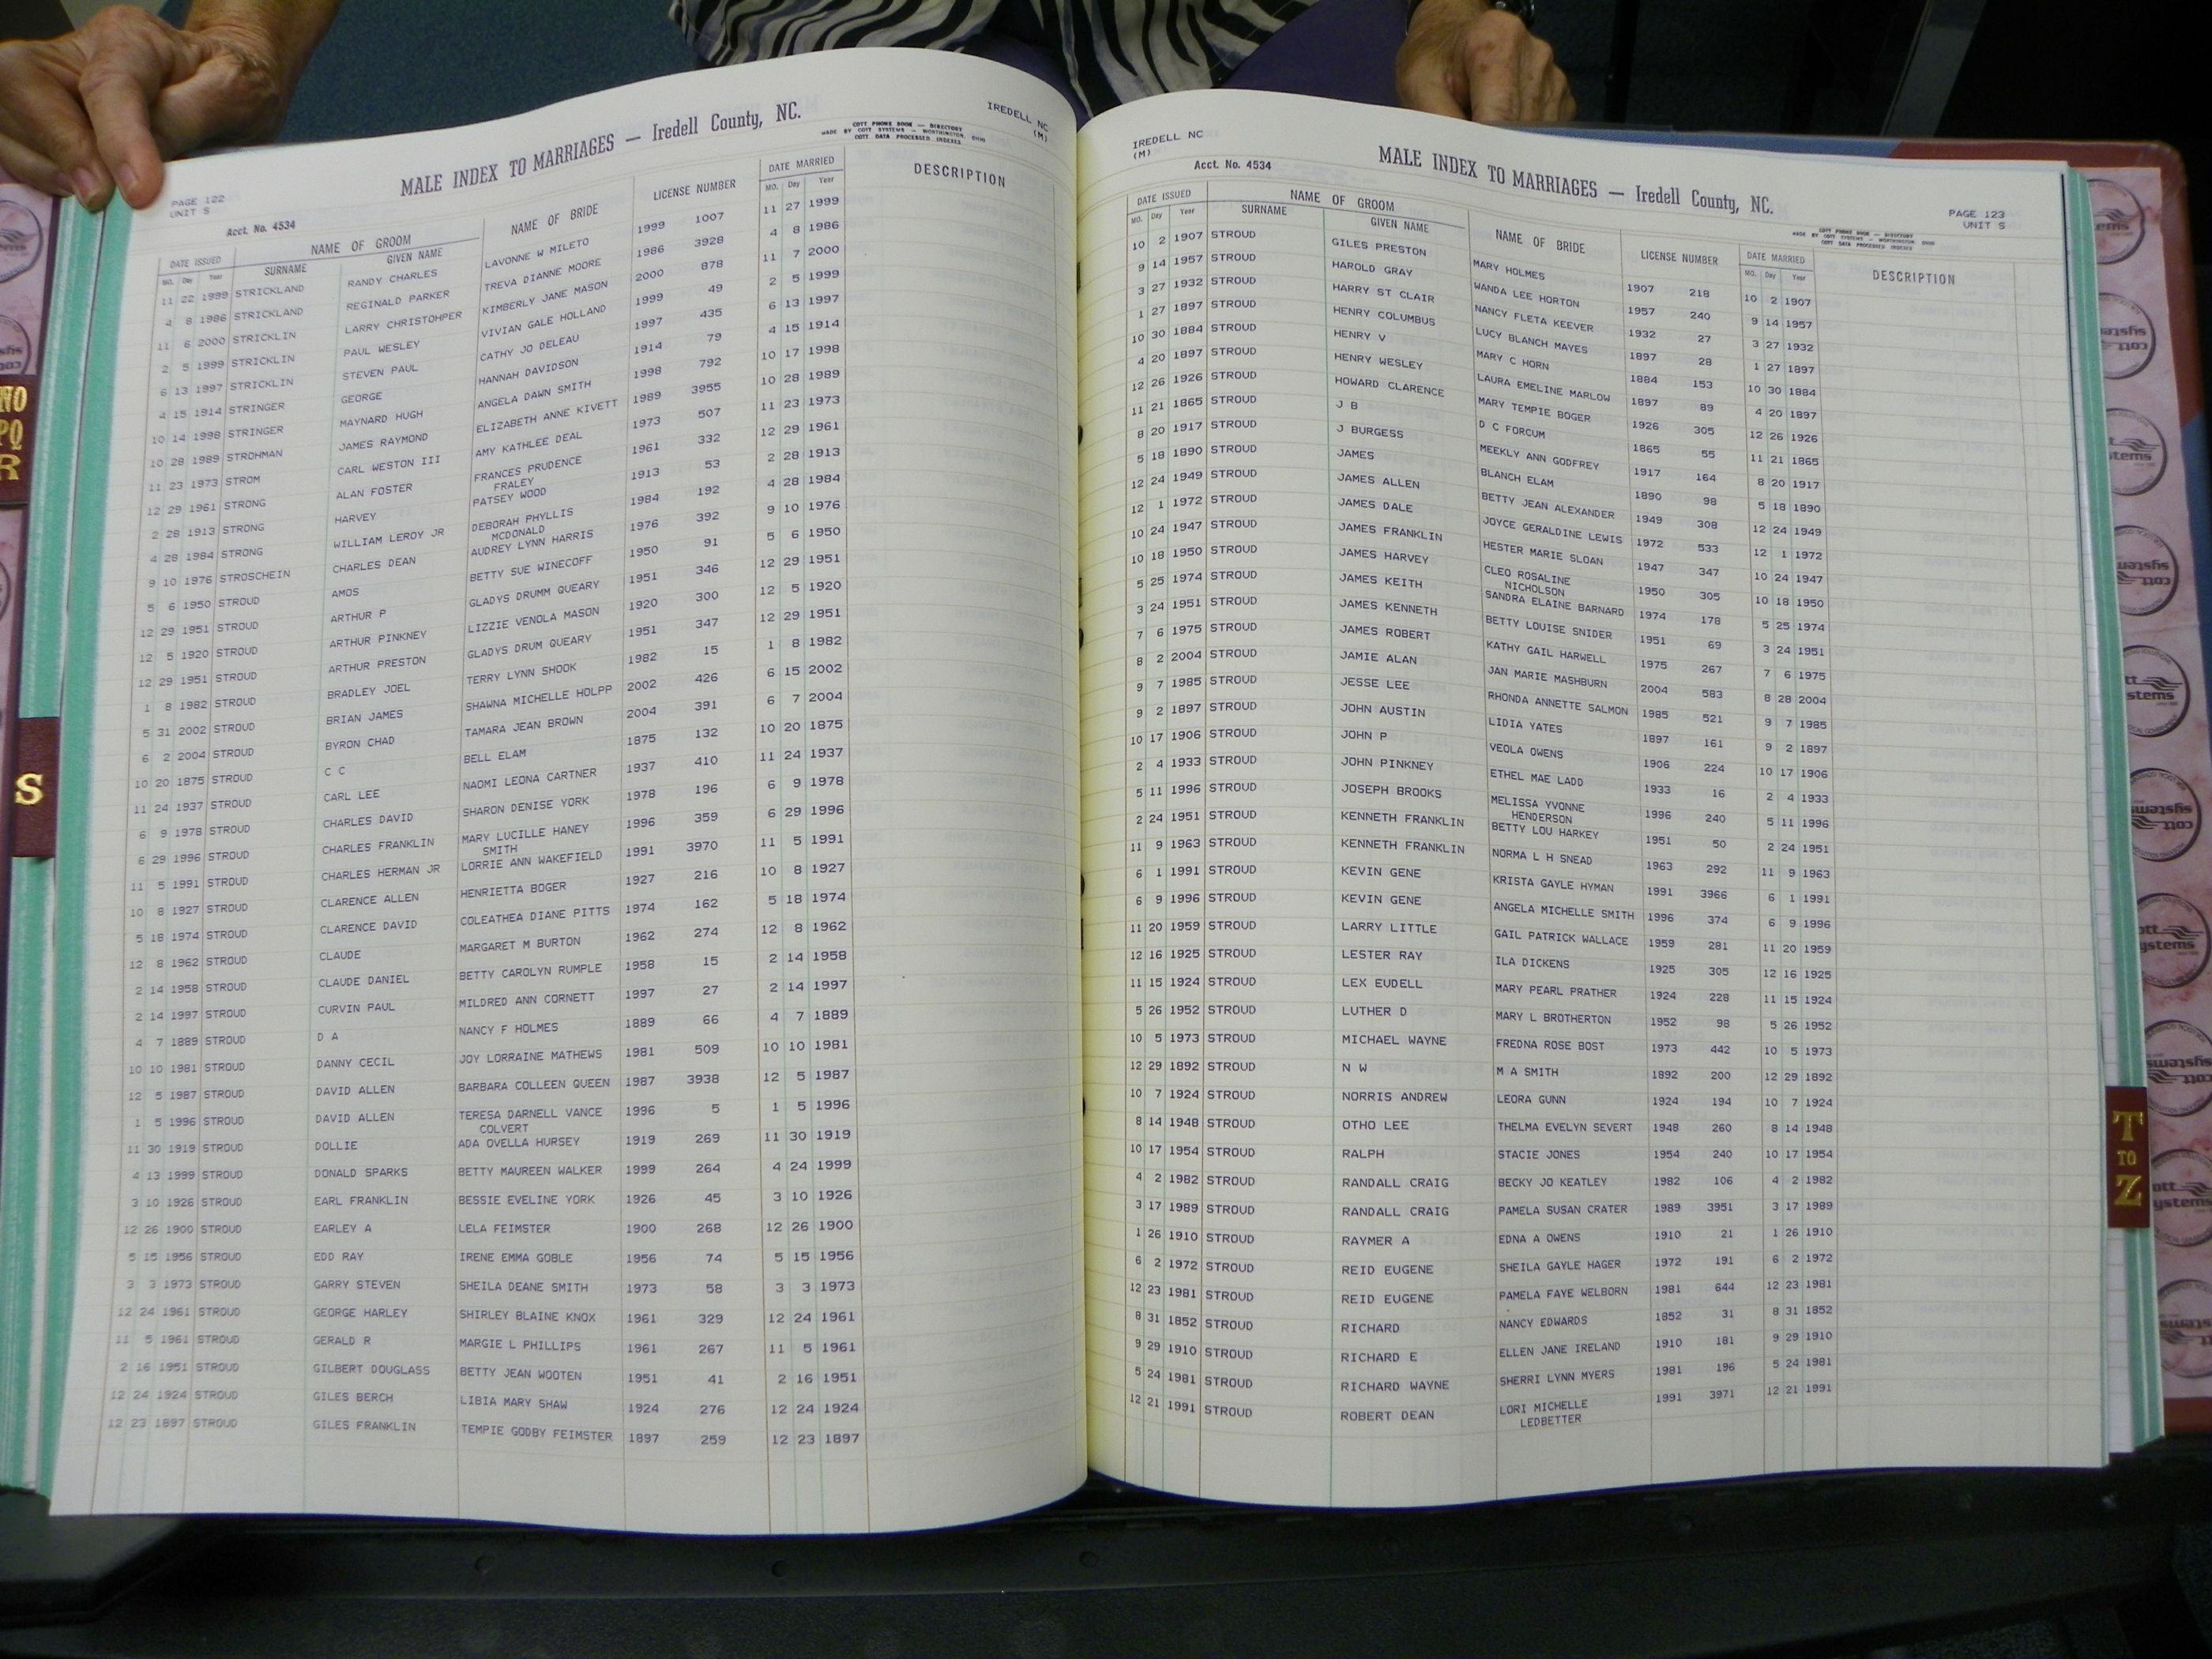 IREDELL NC
(M)
MALE INDEX TO MARRIAGES — Iredell County, NC.
COTT PHONE BOOK — DIRECTORY
MADE BY COTT SYSTEMS — WORTHINGTON, OHIO
COTT DATA PROCESSED INDEXES
PAGE 122
UNIT S
Acct. No. 4534
DATE ISSUED NAME OF GROOM NAME OF BRIDE LICENSE NUMBER DATE MARRIED DESCRIPTION
MO. Day Year SURNAME GIVEN NAME MO. Day Year
11 22 1999 STRICKLAND RANDY CHARLES LAVONNE W MILETO 1999 1007 11 27 1999
4 8 1986 STRICKLAND REGINALD PARKER TREVA DIANNE MOORE 1986 3928 4 8 1986
11 6 2000 STRICKLIN LARRY CHRISTOHPER KIMBERLY JANE MASON 2000 878 11 7 2000
2 5 1999 STRICKLIN PAUL WESLEY VIVIAN GALE HOLLAND 1999 49 2 5 1999
6 13 1997 STRICKLIN STEVEN PAUL CATHY JO DELEAU 1997 435 6 13 1997
4 15 1914 STRINGER GEORGE HANNAH DAVIDSON 1914 79 4 15 1914
10 14 1998 STRINGER MAYNARD HUGH ANGELA DAWN SMITH 1998 792 10 17 1998
10 28 1989 STROHMAN JAMES RAYMOND ELIZABETH ANNE KIVETT 1989 3955 10 28 1989
11 23 1973 STROM CARL WESTON III AMY KATHLEE DEAL 1973 507 11 23 1973
12 29 1961 STRONG ALAN FOSTER FRANCES PRUDENCE 1961 332 12 29 1961
FRALEY
2 28 1913 STRONG HARVEY PATSEY WOOD 1913 53 2 28 1913
4 28 1984 STRONG WILLIAM LEROY JR DEBORAH PHYLLIS 1984 192 4 28 1984
MCDONALD
9 10 1976 STROSCHEIN CHARLES DEAN AUDREY LYNN HARRIS 1976 392 9 10 1976
5 6 1950 STROUD AMOS BETTY SUE WINECOFF 1950 91 5 6 1950
12 29 1951 STROUD ARTHUR P GLADYS DRUMM QUEARY 1951 346 12 29 1951
12 5 1920 STROUD ARTHUR PINKNEY LIZZIE VENOLA MASON 1920 300 12 5 1920
12 29 1951 STROUD ARTHUR PRESTON GLADYS DRUM QUEARY 1951 347 12 29 1951
1 8 1982 STROUD BRADLEY JOEL TERRY LYNN SHOOK 1982 15 1 8 1982
5 31 2002 STROUD BRIAN JAMES SHAWNA MICHELLE HOLPP 2002 426 6 15 2002
6 2 2004 STROUD BYRON CHAD TAMARA JEAN BROWN 2004 391 6 7 2004
10 20 1875 STROUD C C BELL ELAM 1875 132 10 20 1875
11 24 1937 STROUD CARL LEE NAOMI LEONA CARTNER 1937 410 11 24 1937
6 9 1978 STROUD CHARLES DAVID SHARON DENISE YORK 1978 196 6 9 1978
6 29 1996 STROUD CHARLES FRANKLIN MARY LUCILLE HANEY 1996 359 6 29 1996
SMITH
11 5 1991 STROUD CHARLES HERMAN JR LORRIE ANN WAKEFIELD 1991 3970 11 5 1991
10 8 1927 STROUD CLARENCE ALLEN HENRIETTA BOGER 1927 216 10 8 1927
5 18 1974 STROUD CLARENCE DAVID COLEATHEA DIANE PITTS 1974 162 5 18 1974
12 8 1962 STROUD CLAUDE MARGARET M BURTON 1962 274 12 8 1962
2 14 1958 STROUD CLAUDE DANIEL BETTY CAROLYN RUMPLE 1958 15 2 14 1958
2 14 1997 STROUD CURVIN PAUL MILDRED ANN CORNETT 1997 27 2 14 1997
4 7 1889 STROUD D A NANCY F HOLMES 1889 66 4 7 1889
10 10 1981 STROUD DANNY CECIL JOY LORRAINE MATHEWS 1981 509 10 10 1981
12 5 1987 STROUD DAVID ALLEN BARBARA COLLEEN QUEEN 1987 3938 12 5 1987
1 5 1996 STROUD DAVID ALLEN TERESA DARNELL VANCE 1996 5 1 5 1996
COLVERT
11 30 1919 STROUD DOLLIE ADA OVELLA HURSEY 1919 269 11 30 1919
4 13 1999 STROUD DONALD SPARKS BETTY MAUREEN WALKER 1999 264 4 24 1999
3 10 1926 STROUD EARL FRANKLIN BESSIE EVELINE YORK 1926 45 3 10 1926
12 26 1900 STROUD EARLEY A LELA FEIMSTER 1900 268 12 26 1900
5 15 1956 STROUD EDD RAY IRENE EMMA GOBLE 1956 74 5 15 1956
3 3 1973 STROUD GARRY STEVEN SHEILA DEANE SMITH 1973 58 3 3 1973
12 24 1961 STROUD GEORGE HARLEY SHIRLEY BLAINE KNOX 1961 329 12 24 1961
11 5 1961 STROUD GERALD R MARGIE L PHILLIPS 1961 267 11 5 1961
2 16 1951 STROUD GILBERT DOUGLASS BETTY JEAN WOOTEN 1951 41 2 16 1951
12 24 1924 STROUD GILES BERCH LIBIA MARY SHAW 1924 276 12 24 1924
12 23 1897 STROUD GILES FRANKLIN TEMPIE GODBY FEIMSTER 1897 259 12 23 1897
IREDELL NC
(M)
Acct. No. 4534
MALE INDEX TO MARRIAGES — Iredell County, NC.
PAGE 123
UNIT S
COTT PHONE BOOK — DIRECTORY
MADE BY COTT SYSTEMS — WORTHINGTON, OHIO
COTT DATA PROCESSED INDEXES
DATE ISSUED NAME OF GROOM NAME OF BRIDE LICENSE NUMBER DATE MARRIED DESCRIPTION
MO. Day Year SURNAME GIVEN NAME MO. Day Year
10 2 1907 STROUD GILES PRESTON MARY HOLMES 1907 218 10 2 1907
9 14 1957 STROUD HAROLD GRAY WANDA LEE HORTON 1957 240 9 14 1957
3 27 1932 STROUD HARRY ST CLAIR NANCY FLETA KEEVER 1932 27 3 27 1932
1 27 1897 STROUD HENRY COLUMBUS LUCY BLANCH MAYES 1897 28 1 27 1897
10 30 1884 STROUD HENRY V MARY C HORN 1884 153 10 30 1884
4 20 1897 STROUD HENRY WESLEY LAURA EMELINE MARLOW 1897 89 4 20 1897
12 26 1926 STROUD HOWARD CLARENCE MARY TEMPIE BOGER 1926 305 12 26 1926
11 21 1865 STROUD J B D C FORCUM 1865 55 11 21 1865
8 20 1917 STROUD J BURGESS MEEKLY ANN GODFREY 1917 164 8 20 1917
5 18 1890 STROUD JAMES BLANCH ELAM 1890 98 5 18 1890
12 24 1949 STROUD JAMES ALLEN BETTY JEAN ALEXANDER 1949 308 12 24 1949
12 1 1972 STROUD JAMES DALE JOYCE GERALDINE LEWIS 1972 533 12 1 1972
10 24 1947 STROUD JAMES FRANKLIN HESTER MARIE SLOAN 1947 347 10 24 1947
10 18 1950 STROUD JAMES HARVEY CLEO ROSALINE 1950 305 10 18 1950
NICHOLSON
5 25 1974 STROUD JAMES KEITH SANDRA ELAINE BARNARD 1974 178 5 25 1974
3 24 1951 STROUD JAMES KENNETH BETTY LOUISE SNIDER 1951 69 3 24 1951
7 6 1975 STROUD JAMES ROBERT KATHY GAIL HARWELL 1975 267 7 6 1975
8 2 2004 STROUD JAMIE ALAN JAN MARIE MASHBURN 2004 583 8 28 2004
9 7 1985 STROUD JESSE LEE RHONDA ANNETTE SALMON 1985 521 9 7 1985
9 2 1897 STROUD JOHN AUSTIN LIDIA YATES 1897 161 9 2 1897
10 17 1906 STROUD JOHN P VEOLA OWENS 1906 224 10 17 1906
2 4 1933 STROUD JOHN PINKNEY ETHEL MAE LADD 1933 16 2 4 1933
5 11 1996 STROUD JOSEPH BROOKS MELISSA YVONNE 1996 240 5 11 1996
HENDERSON
2 24 1951 STROUD KENNETH FRANKLIN BETTY LOU HARKEY 1951 50 2 24 1951
11 9 1963 STROUD KENNETH FRANKLIN NORMA L H SNEAD 1963 292 11 9 1963
6 1 1991 STROUD KEVIN GENE KRISTA GAYLE HYMAN 1991 3966 6 1 1991
6 9 1996 STROUD KEVIN GENE ANGELA MICHELLE SMITH 1996 374 6 9 1996
11 20 1959 STROUD LARRY LITTLE GAIL PATRICK WALLACE 1959 281 11 20 1959
12 16 1925 STROUD LESTER RAY ILA DICKENS 1925 305 12 16 1925
11 15 1924 STROUD LEX EUDELL MARY PEARL PRATHER 1924 228 11 15 1924
5 26 1952 STROUD LUTHER D MARY L BROTHERTON 1952 98 5 26 1952
10 5 1973 STROUD MICHAEL WAYNE FREDNA ROSE BOST 1973 442 10 5 1973
12 29 1892 STROUD N W M A SMITH 1892 200 12 29 1892
10 7 1924 STROUD NORRIS ANDREW LEORA GUNN 1924 194 10 7 1924
8 14 1948 STROUD OTHO LEE THELMA EVELYN SEVERT 1948 260 8 14 1948
10 17 1954 STROUD RALPH STACIE JONES 1954 240 10 17 1954
4 2 1982 STROUD RANDALL CRAIG BECKY JO KEATLEY 1982 106 4 2 1982
3 17 1989 STROUD RANDALL CRAIG PAMELA SUSAN CRATER 1989 3951 3 17 1989
1 26 1910 STROUD RAYMER A EDNA A OWENS 1910 21 1 26 1910
6 2 1972 STROUD REID EUGENE SHEILA GAYLE HAGER 1972 191 6 2 1972
12 23 1981 STROUD REID EUGENE PAMELA FAYE WELBORN 1981 644 12 23 1981
8 31 1852 STROUD RICHARD NANCY EDWARDS 1852 31 8 31 1852
9 29 1910 STROUD RICHARD E ELLEN JANE IRELAND 1910 181 9 29 1910
5 24 1981 STROUD RICHARD WAYNE SHERRI LYNN MYERS 1981 196 5 24 1981
12 21 1991 STROUD ROBERT DEAN LORI MICHELLE 1991 3971 12 21 1991
LEDBETTER
NO
PQ
R
S
T
TO
Z